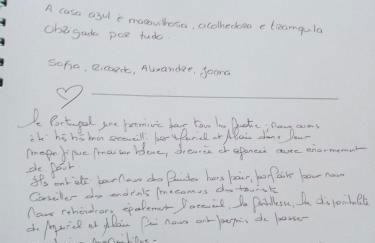 A casa azul é maravilhosa, acolhedora e tranquila
Obrigada por tudo.
Sofia, Ricardo, Alexandre, Joana
Le Portugal une première pour tous les quatre, nous avons
été très bien accueilli par Muriel et Alain dans leur
magnifique maison bleue, décorée et agencée avec énormément
de goût
Ils ont été pour nous des guides hors pair, parfaits pour nous
conseiller des endroits méconnus des touristes
Nous retiendrons également l'accueil, la gentillesse, la disponibilité
de Muriel et Alain qui nous ont permis de passer